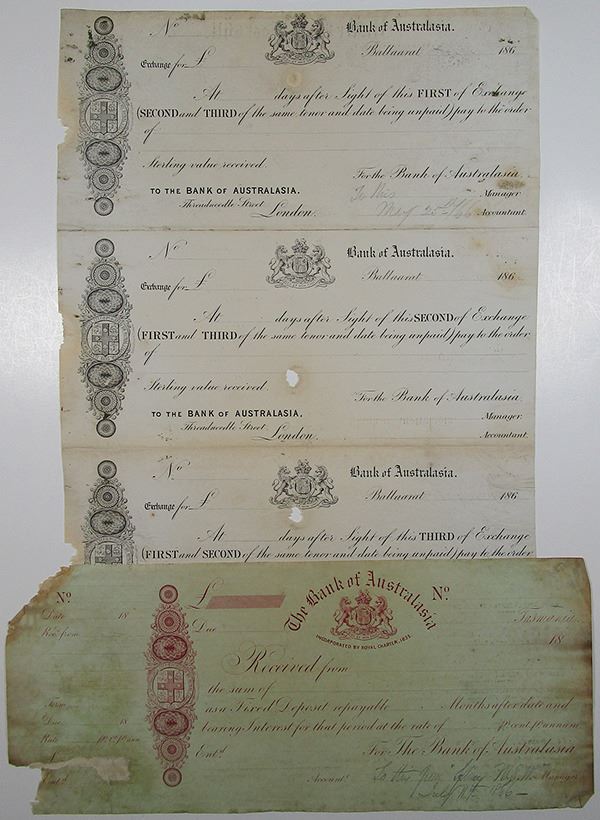 No
Bank of Australasia.
Ballaarat 186
Exchange for £
At days after Sight of this FIRST of Exchange
(SECOND and THIRD of the same tenor and date being unpaid) pay to the order
of
Sterling value received.
For the Bank of Australasia
TO THE BANK OF AUSTRALASIA.
Manager
Threadneedle Street
London.
To this
May 25th /66
Accountant.
No
Bank of Australasia.
Ballaarat 186
Exchange for £
At days after Sight of this SECOND of Exchange
(FIRST and THIRD of the same tenor and date being unpaid) pay to the order
of
Sterling value received.
For the Bank of Australasia
TO THE BANK OF AUSTRALASIA.
Manager.
Threadneedle Street
London.
Accountant.
No
Bank of Australasia.
Ballaarat 186
Exchange for £
At days after Sight of this THIRD of Exchange
(FIRST and SECOND of the same tenor and date being unpaid) pay to the order
No
Date 18
Recd. from
Term
Due 18
Rate
Entd.
£
The Bank of Australasia
INCORPORATED BY ROYAL CHARTER, 1835.
No
Tasmania
Due
18
Received from
the sum of
as a Fixed Deposit repayable Months after date and
bearing Interest for that period at the rate of pr cent pr annum
Entd.
For The Bank of Australasia
Accountt.
To this
Manager
July